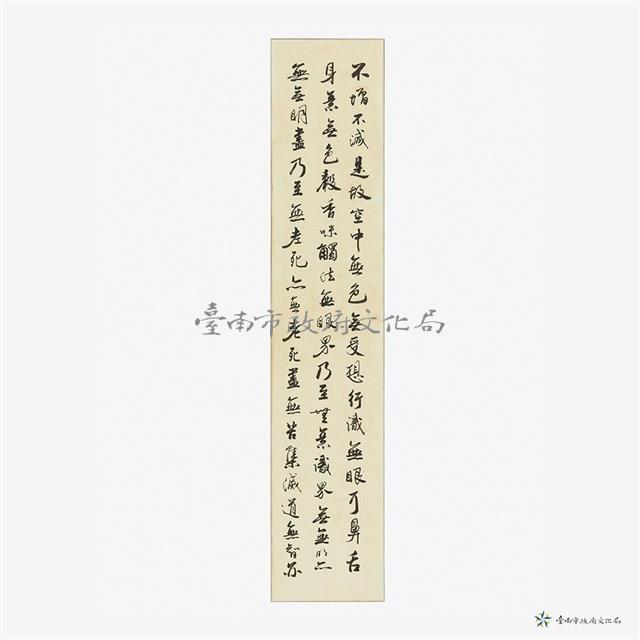 不增不減是故空中無色無受想行識無眼耳鼻舌
身意無色聲香味觸法無眼界乃至無意識界無無明亦
無無明盡乃至無老死亦無老死盡無苦集滅道無智亦
臺南市政府文化局
臺南市政府文化局